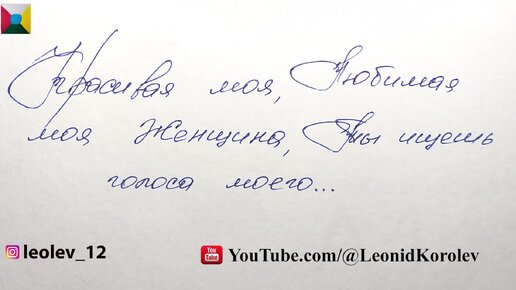 Красивая моя, Любимая
моя Женщина, Ты ищешь
голоса моего...
leolev_12
YouTube.com/@LeonidKorolev